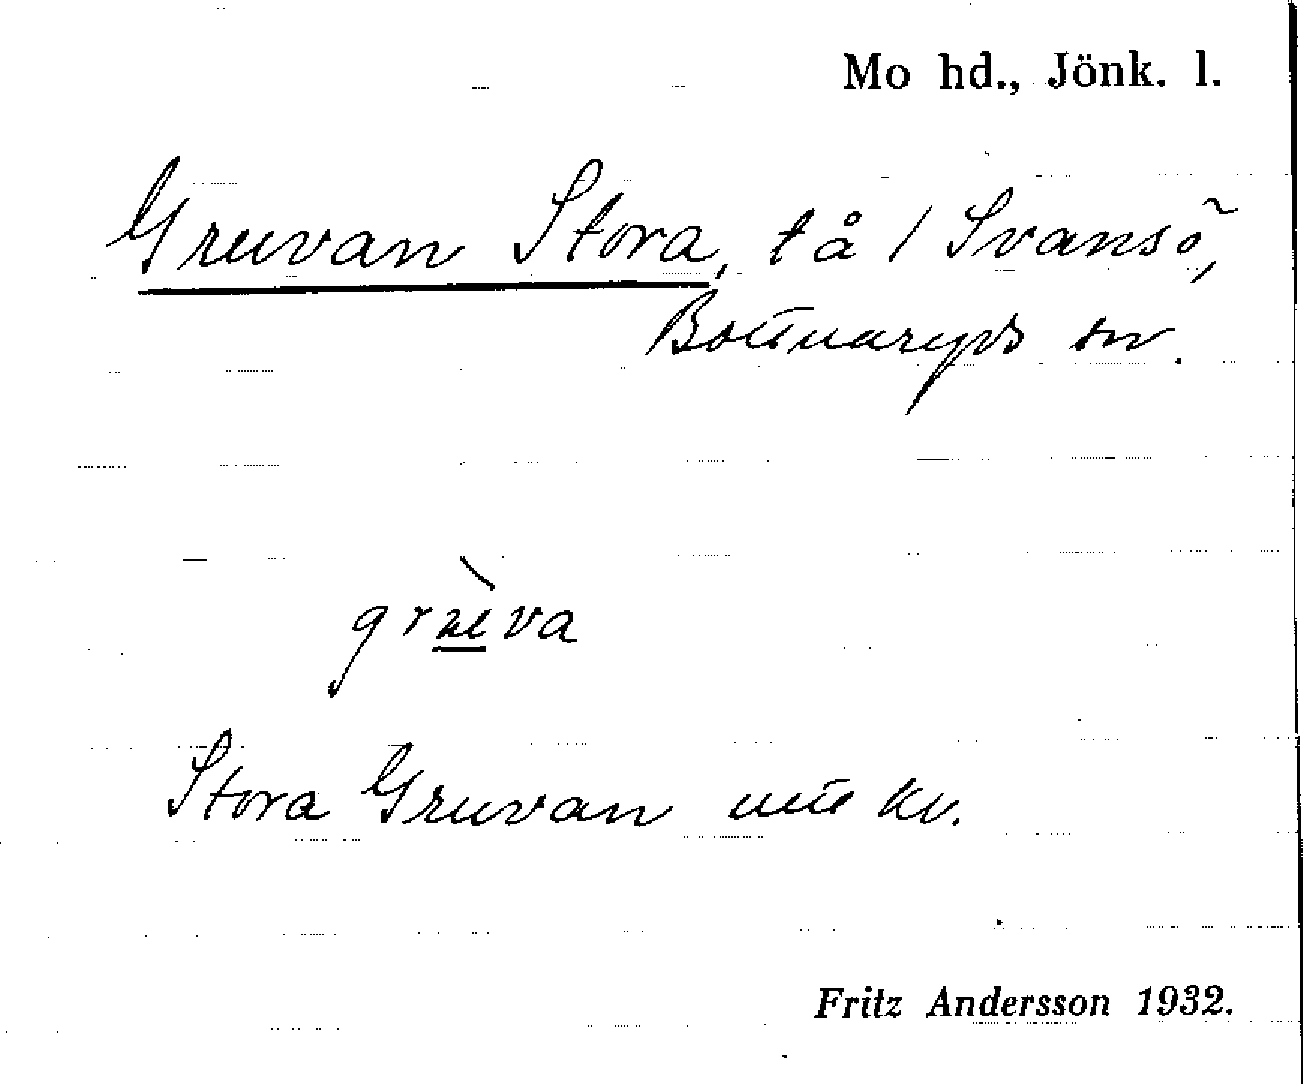 Mo hd., Jönk. l.
Gruvan Stora, tå / Svansö,
Bottnaryds sn.
Stora Gruvan utt kv.
Fritz Andersson 1932.